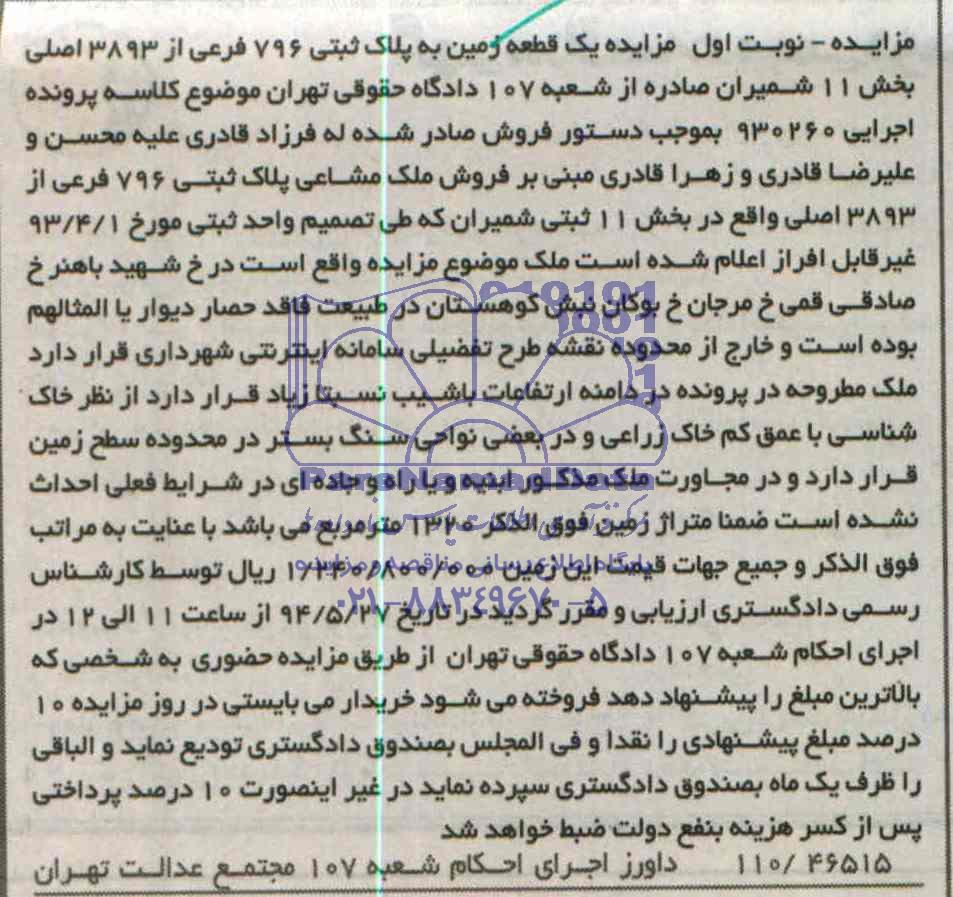 مزایده - نوبت اول مزایده یک قطعه زمین به پلاک ثبتی ۷۹۶ فرعی از ۳۸۹۳ اصلی
بخش ۱۱ شمیران صادره از شعبه ۱۰۷ دادگاه حقوقی تهران موضوع کلاسه پرونده
اجرایی ۹۳۰۲۶۰ بموجب دستور فروش صادر شده له فرزاد قادری علیه محسن و
علیرضا قادری و زهرا قادری مبنی بر فروش ملک مشاعی پلاک ثبتی ۷۹۶ فرعی از
۳۸۹۳ اصلی واقع در بخش ۱۱ ثبتی شمیران که طی تصمیم واحد ثبتی مورخ ۹۳/۴/۱
غیرقابل افراز اعلام شده است ملک موضوع مزایده واقع است در خ شهید باهنر خ
صادقی قمی خ مرجان خ بوکان نبش کوهستان در طبیعت فاقد حصار دیوار یا المثالهم
بوده است و خارج از محدوده نقشه طرح تفضیلی سامانه اینترنتی شهرداری قرار دارد
ملک مطروحه در پرونده در دامنه ارتفاعات باشیب نسبتا زیاد قرار دارد از نظر خاک
شناسی با عمق کم خاک زراعی و در بعضی نواحی سنگ بستر در محدوده سطح زمین
قرار دارد و در مجاورت ملک مذکور ابنیه و یا راه و جاده ای در شرایط فعلی احداث
نشده است ضمنا متراژ زمین فوق الذکر ۱۳۲۰ مترمربع می باشد با عنایت به مراتب
فوق الذکر و جمیع جهات قیمت این زمین ریال توسط کارشناس
رسمی دادگستری ارزیابی و مقرر گردید در تاریخ ۹۴/۵/۲۷ از ساعت ۱۱ الی ۱۲ در
اجرای احکام شعبه ۱۰۷ دادگاه حقوقی تهران از طریق مزایده حضوری به شخصی که
بالاترین مبلغ را پیشنهاد دهد فروخته می شود خریدار می بایستی در روز مزایده ۱۰
درصد مبلغ پیشنهادی را نقدا و فی المجلس بصندوق دادگستری تودیع نماید و الباقی
را ظرف یک ماه بصندوق دادگستری سپرده نماید در غیر اینصورت ۱۰ درصد پرداختی
پس از کسر هزینه بنفع دولت ضبط خواهد شد
۱۱۰/ ۴۶۵۱۵ داورز اجرای احکام شعبه ۱۰۷ مجتمع عدالت تهران
ParsNamadData
پایگاه اطلاع رسانی مناقصه و مزایده
۰۲۱-۸۸۳۴۹۶۷۰-۵